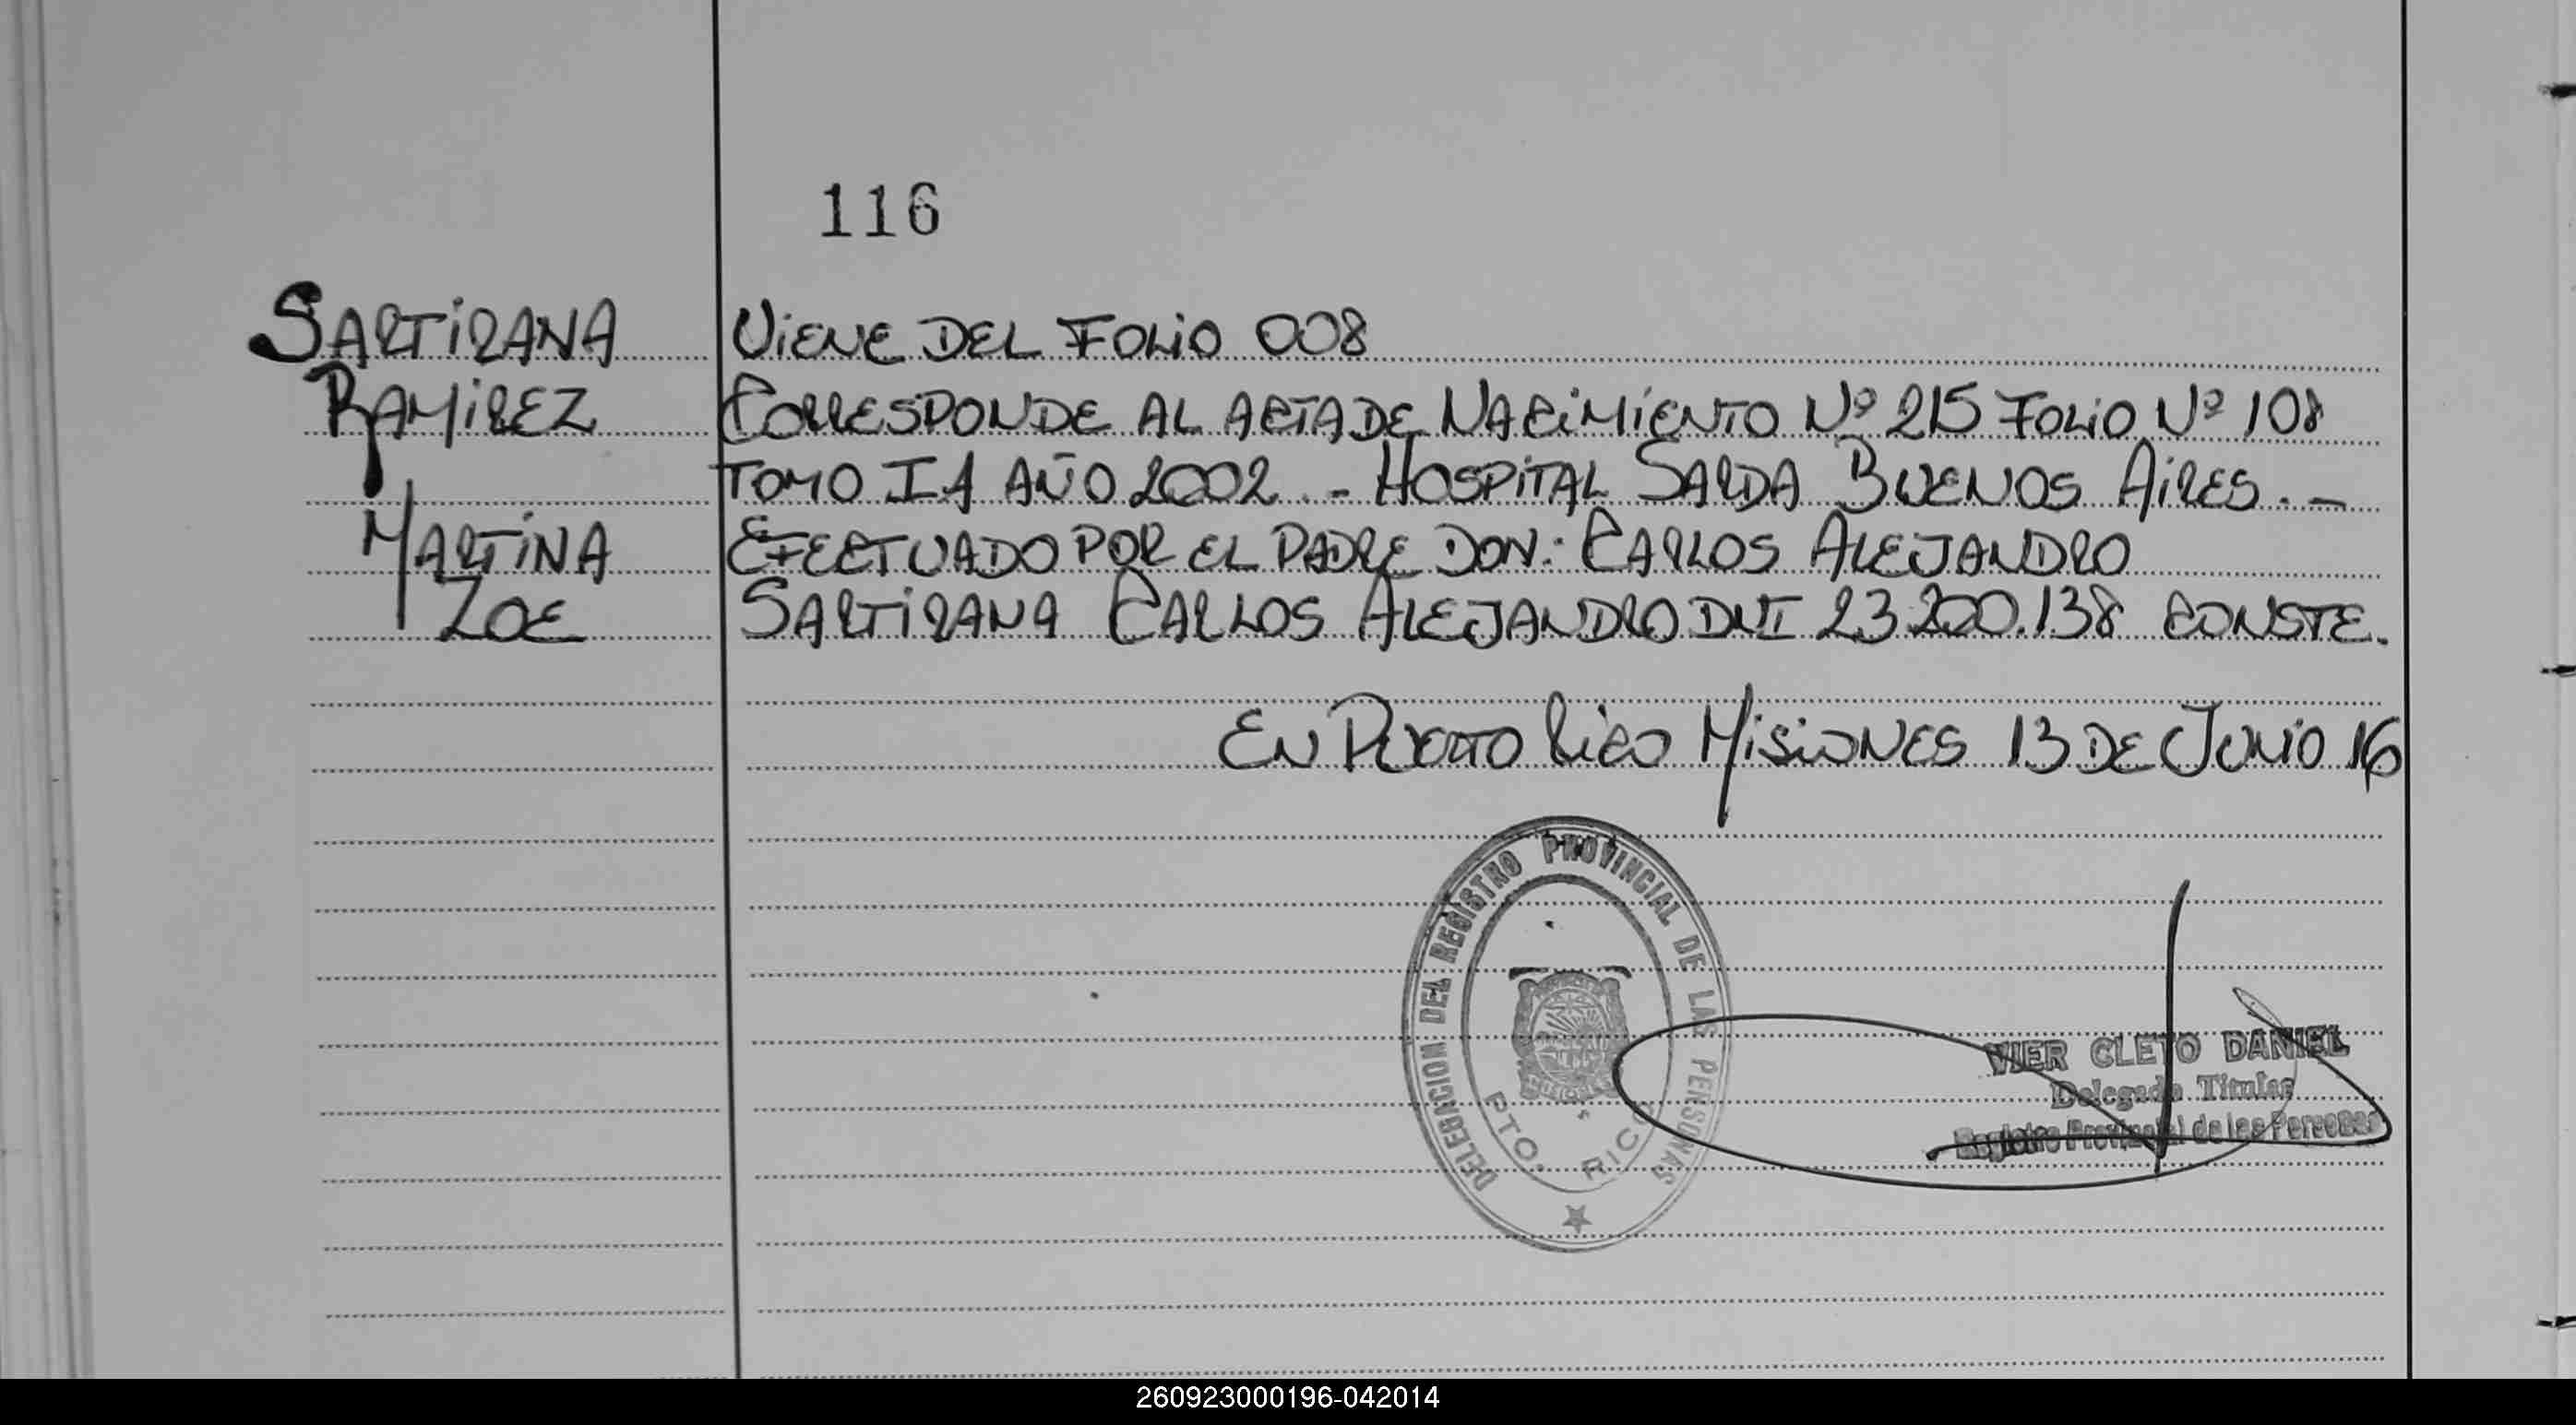 116
SARTIRANA
RAMIREZ
MARTINA
ZOE
VIENE DEL FOLIO 008
CORRESPONDE AL ACTA DE NACIMIENTO Nº 215 FOLIO Nº 108
TOMO I1 AÑO 2002. - HOSPITAL SARDA BUENOS AIRES. -
EFECTUADO POR EL PADRE DON: CARLOS ALEJANDRO
SARTIRANA CARLOS ALEJANDRO DNI 23.200.138 CONSTE.
EN PUERTO RICO MISIONES 13 DE JUNIO 16
DELEGACION DEL REGISTRO PROVINCIAL DE LAS PERSONAS
PTO. RICO
VIER CLETO DANIEL
Delegado Titular
Registro Provincial de las Personas
260923000196-042014